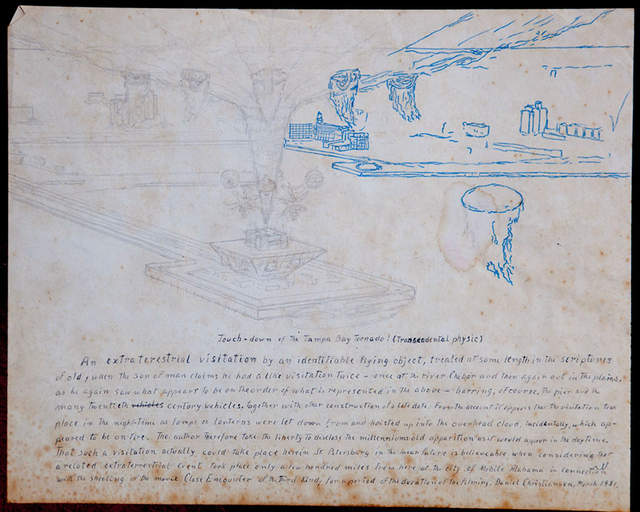 Touch-down of the Tampa Bay Tornado! (Transcendental physic)
An extraterestrial visitation by an identifiable flying object, treated at some length in the scriptures
of old, when the son of man claims he had a like visitation twice - once at the river Chebar and then again out in the plains,
as he again saw what appears to be on the order of what is represented in the above - barring, of course, the pier and the
many twentieth vehicles century vehicles, together with other construction of a late date. From the account it appears that the visitation took
place in the nighttime as lamps or lanterns were let down from and hoisted up into the overhead cloud, incidentally, which ap-
peared to be on fire. The author therefore takes the liberty to disclose the millenniums old apparition as it would appear in the daytime.
That such a visitation actually, could take place herein St. Petersburg in the near future is believeable when considering that
a related extraterrestrial event took place only a few hundred miles from here at the city of Mobile Alabama in connection
with the shooting of the movie Close Encounter of the Third Kind, for a period of the duration of the filming. Daniel Christiansen, March 1981.